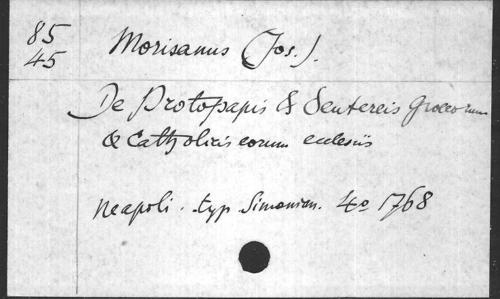 85
45
Morisanus (Jos.).
De Protopapis & Deutereis Graecorum
& Catholicis eorum ecclesiis
Neapoli. typ Simonian. 4o 1768